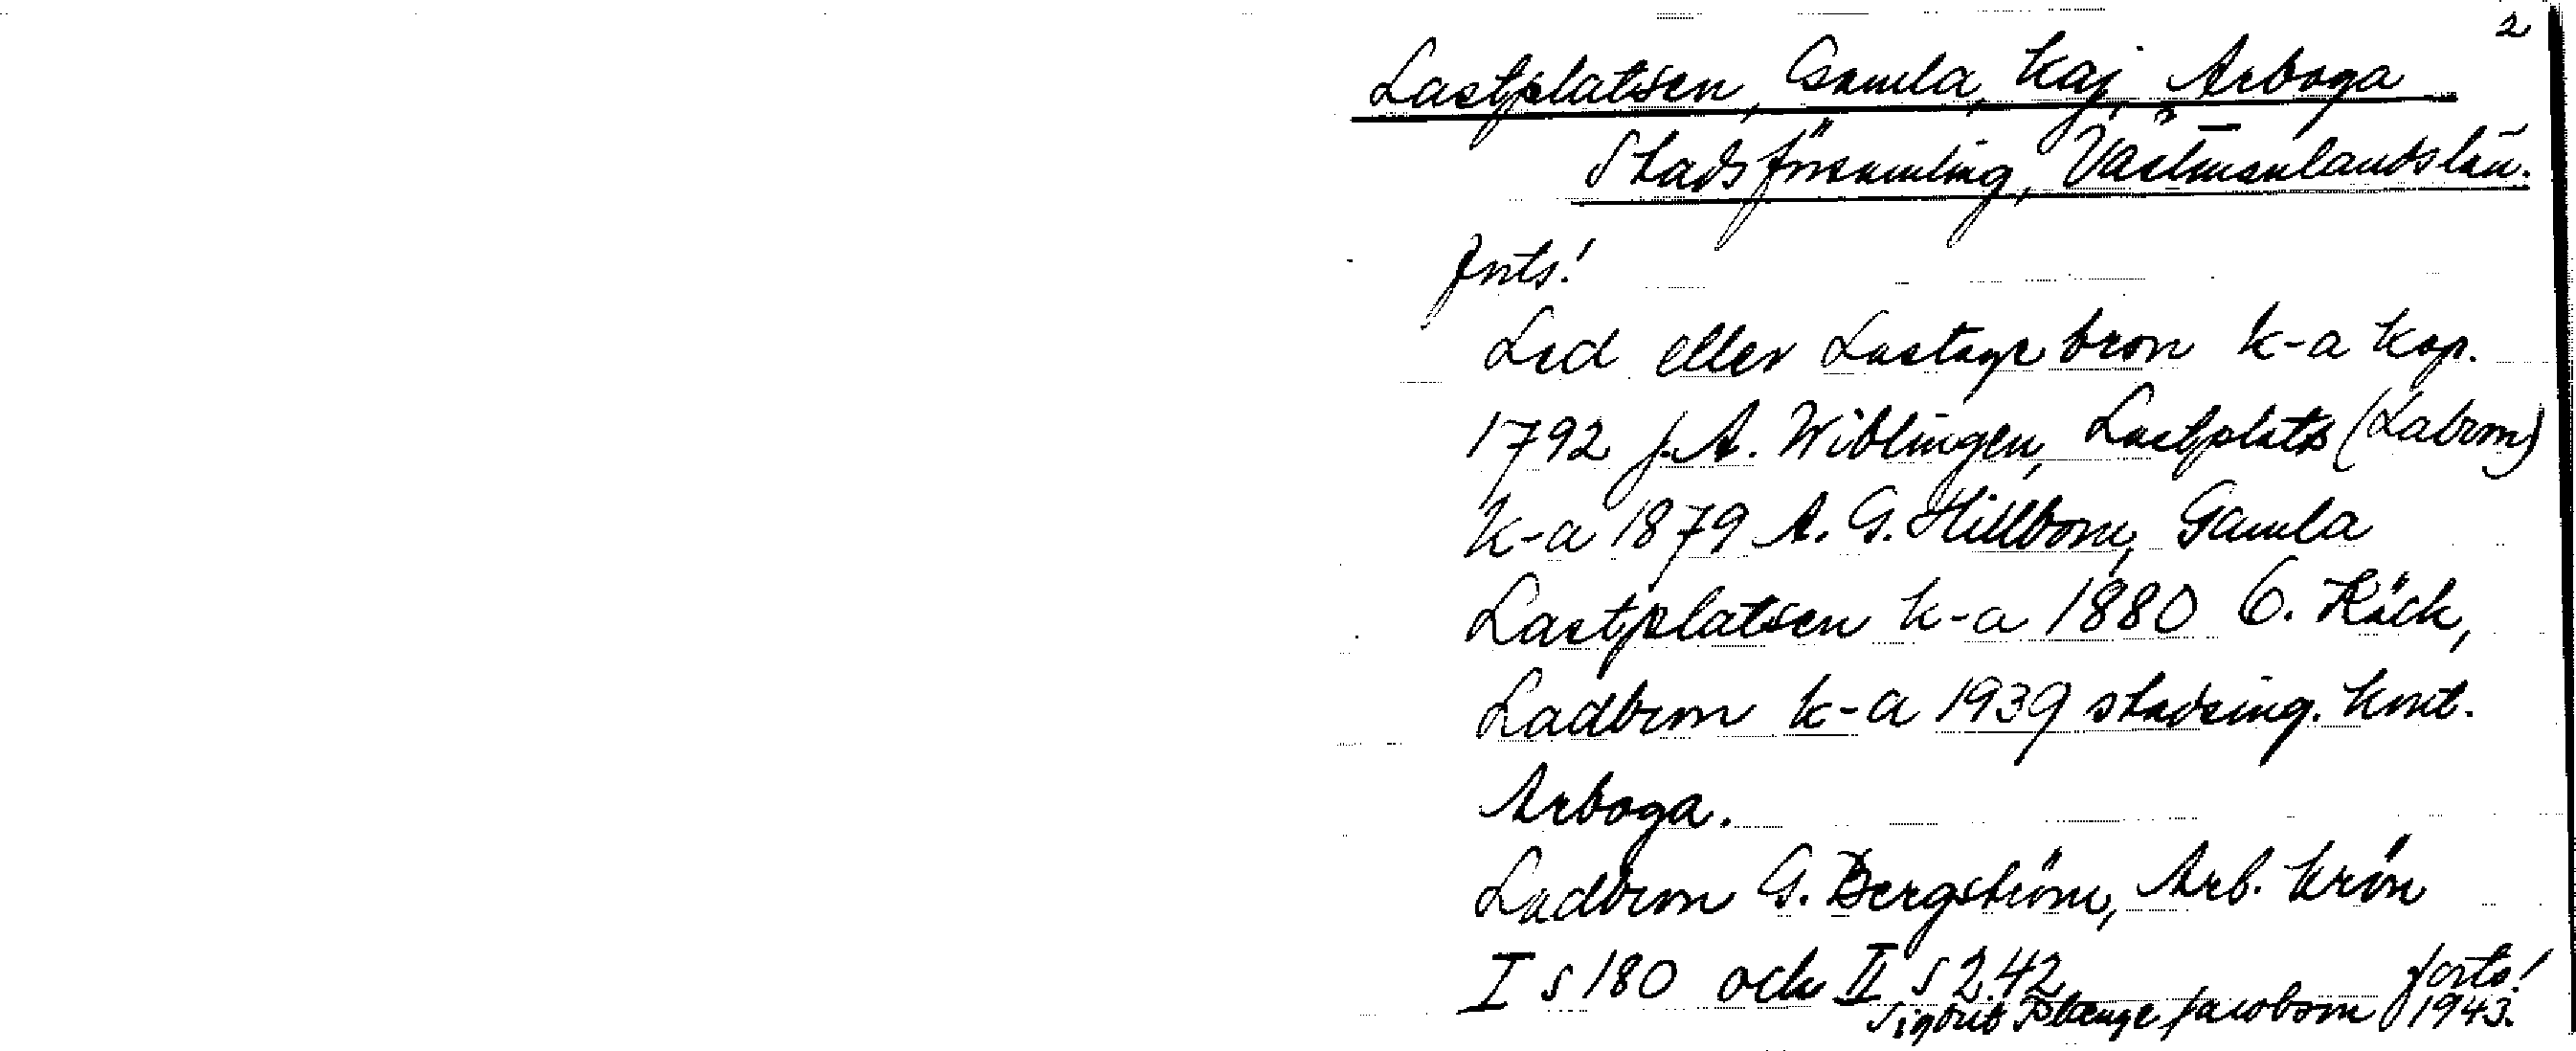 2
Lastplatsen, Gamla, kaj, Arboga
Stadsförsamling, Västmanlands län.
forts!
Lad eller Lastage bron k-a kop.
1792 J.A. Wiblingen, Lastplats (Labron)
k-a 1879 A. G. Hillbom, Gamla
Lastplatsen k-a 1880 C. Käck,
Ladbron k-a 1939 stadsing. kont.
Arboga.
Ladbron G. Bergström, Arb. krön
I s 180 och II s 242
forts!
Sigurd Jacobson 1943.